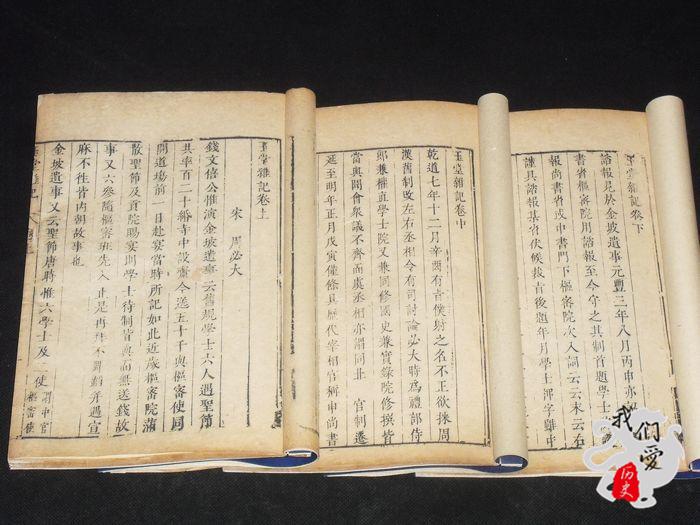 玉堂雜記卷上
宋 周必大
錢文僖公惟演金坡遺事云舊規學士六人遇聖節
共率百二十緡寺中設齋今送五十千與樞密使同
開道場前一日赴宴當時所記如此近歲樞密院滿
散聖節及貢院賜宴則學士待制皆與而無送錢故
事又六參隨樞密班先入止是再拜不舞蹈并遇宣
麻不往皆內朝故事也
金坡遺事又云聖節唐時惟六學士及一使 謂中官樞密使
玉堂雜記卷中
乾道七年十二月辛酉有旨僕射之名不正欲採周
漢舊制改左右丞相令有司討論必大時為禮部侍
郎兼權直學士院又兼同修國史兼實錄院修撰皆
當與聞會衆議不齊而虞丞相亦謂同北 官制遷
延至明年正月戊寅僅條具歷代宰相官稱申尚書
玉堂雜記卷下
諮報見於金坡遺事元豐三年八月丙申亦
書省樞密院用諮報至今守之其制首題學士
報尚書省或中書門下樞密院次入詞云云末云右
謹具諮報某省伏候裁旨後題年月學士押字雖中
我们爱
历史